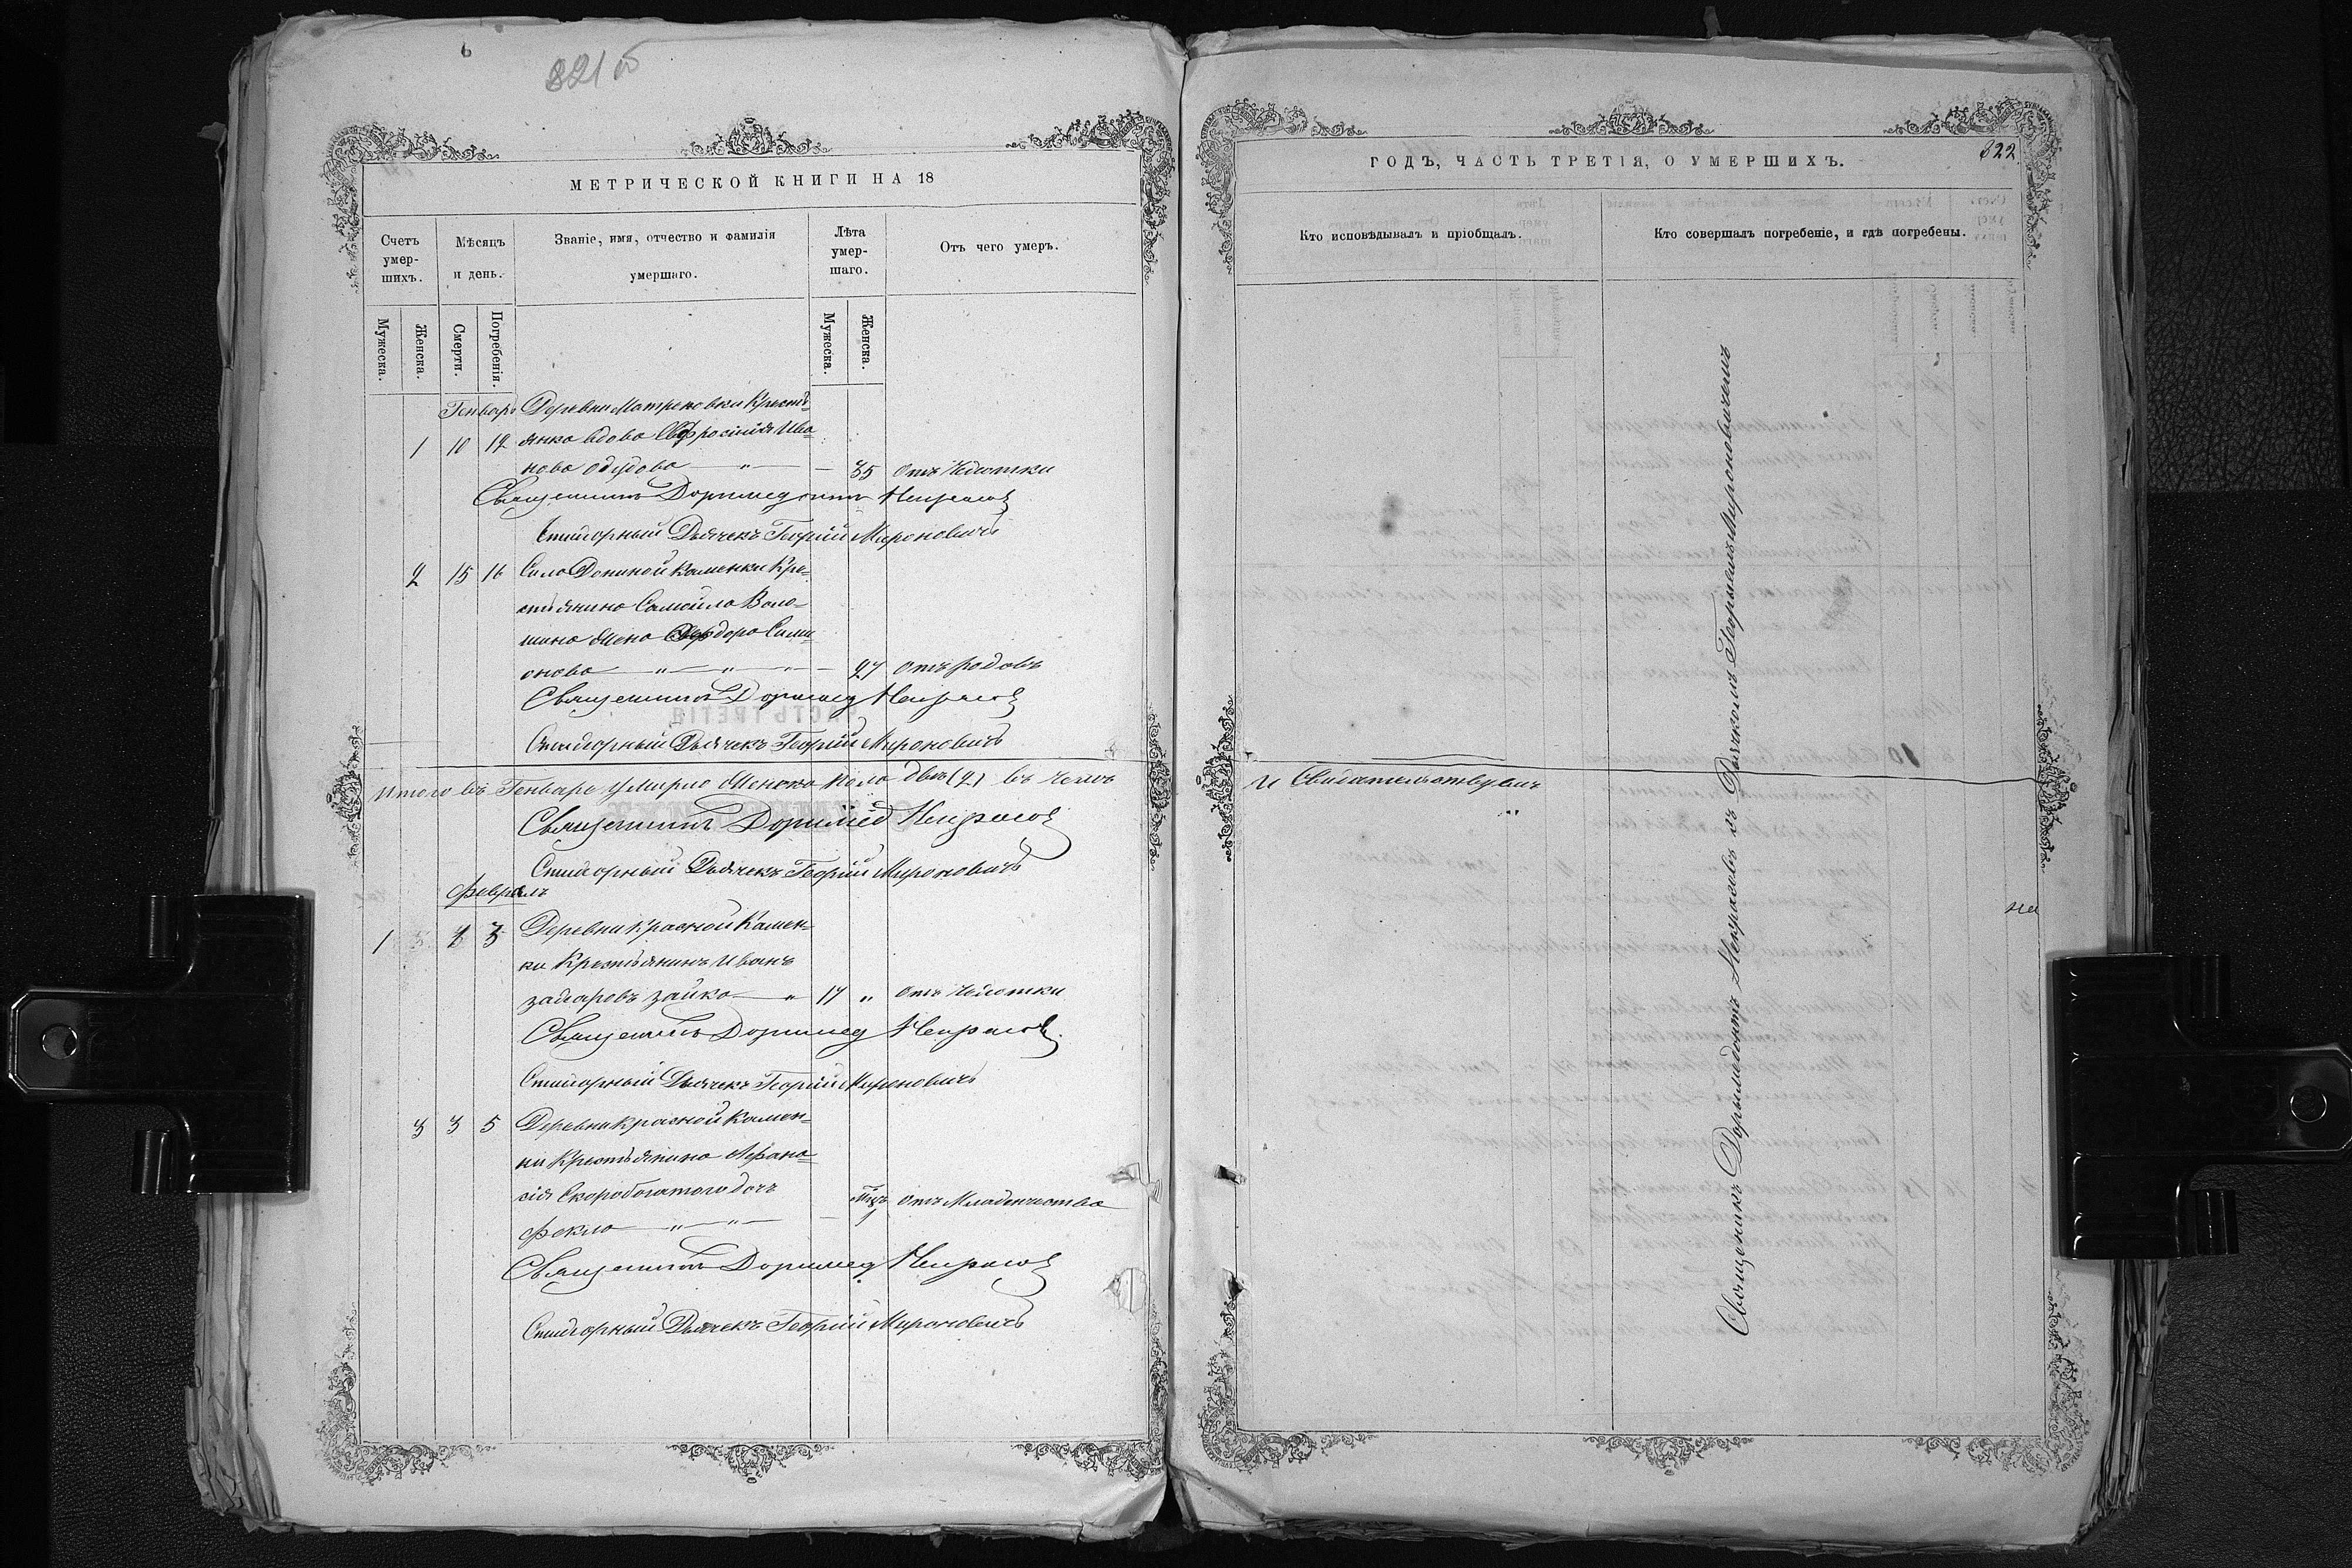 821 об
МЕТРИЧЕСКОЙ КНИГИ НА 18
Счетъ умер-шихъ.
Мѣсяцъ и день.
Званіе, имя, отчество и фамилія умершаго.
Лѣта умер-шаго.
Отъ чего умеръ.
Мужеска.
Женска.
Смерти.
Погребенія.
Мужеска.
Женска.
Генварь Деревни Матреновки Кресть-
1 10 12 янка вдова Евфросинія Ива-
нова — " — 85 отъ Чахотки
Священникъ Доримедонтъ Некрасовъ
Стихарный Дьячекъ Георгій Мироновичъ
2 15 16 Села Дониной Каменки Кре-
стьянина Самойла Воло-
шина жена Феодора Сими-
онова — " — " — " — 27 отъ родовъ
Священникъ Доримед Некрасовъ
Стихарный Дьячекъ Георгій Мироновичъ
Итого въ Генваре умерло Женска пола двѣ (2) въ чемъ
Священникъ Доримед Некрасовъ
Стихарный Дьячекъ Георгій Мироновичъ
Февраль
1 3 Деревни Красной Камен-
ки Крестьянинъ Иванъ
Зайка — " 17 " отъ Чахотки
Священникъ Доримед Некрасовъ
Стихарный Дьячекъ Георгій Мироновичъ
3 3 5 Деревни Красной Камен-
ки Крестьянина Афана-
сія Скоробогатого дочь
Фекла — " — " — отъ Младенчества
Священникъ Доримед Некрасовъ
Стихарный Дьячекъ Георгій Мироновичъ
ГОДЪ, ЧАСТЬ ТРЕТІЯ, О УМЕРШИХЪ.
822
Кто исповѣдывалъ и пріобщалъ.
Кто совершалъ погребеніе, и гдѣ погребены.
и Свидѣтельствуемъ
на
Священникъ Дорымедонтъ Некрасовъ съ Дьячкомъ Георгіемъ Мироновичемъ